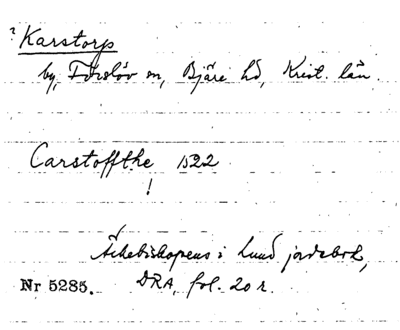 ? Karstorp
by, Förslöv sn, Bjäre hd, Krist. län.
Carstoffthe 1522
!
Ärkebiskopens i Lund jordebok,
Nr 5285. DRA, fol. 20 r.